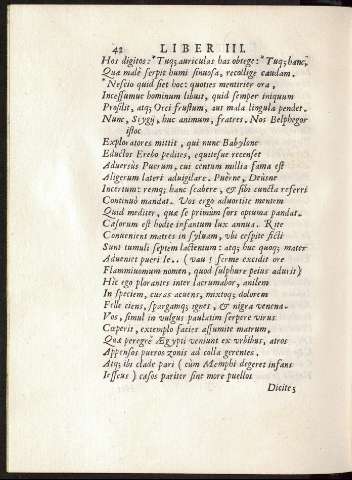 42 LIBER III.
Hos digitos: * Tuq; auriculas has obtege: * Tuq; hanc,
Quæ malè serpit humi sinuosa, recollige caudam.
* Nescio quid siet hoc: quoties mentirier ora,
Incessumue hominum libuit, quid semper iniquum
Prosilit, atq; Orci frustum, aut mala lingula pendet.
Nunc, Stygij, huc animum, fratres. Nos Belphegor
istoc
Exploratores mittit, qui nunc Babylone
Eductos Erebo pedites, equitesue recenset
Aduersùs Puerum, cui centum millia fama est
Aligerum lateri aduigilare. Puérne, Deúsne
Incertum: remq; hanc scabere, & sibi cuncta referri
Continuò mandat. Vos ergo aduortite mentem
Quid mediter, quæ se primùm sors optuma pandat.
Cæsorum est hodie infantum lux annua. Rite
Conuenient matres in syluam, vbi cespite sicli
Sunt tumuli septem lactentum: atq; huc quoq; mater
Adueniet pueri Ie.. ( vau ! ferme excidit ore
Flammiuomum nomen, quod sulphure peius adurit)
Hic ego plorantes inter lacrumabor, anilem
In speciem, curas acuens, mixtoq; dolorem
Felle ciens, spargamq; ignes, & nigra venena.
Vos, simul in vulgus paulatim serpere virus
Cœperit, extemplo facies assumite matrum,
Quæ peregrè Ægypti veniunt ex vrbibus, atros
Appensos pueros zonis ad colla gerentes.
Atq; ibi clade pari ( cùm Memphi degeret infans
Iesseus ) cæsos pariter sine more puellos
Dicite;